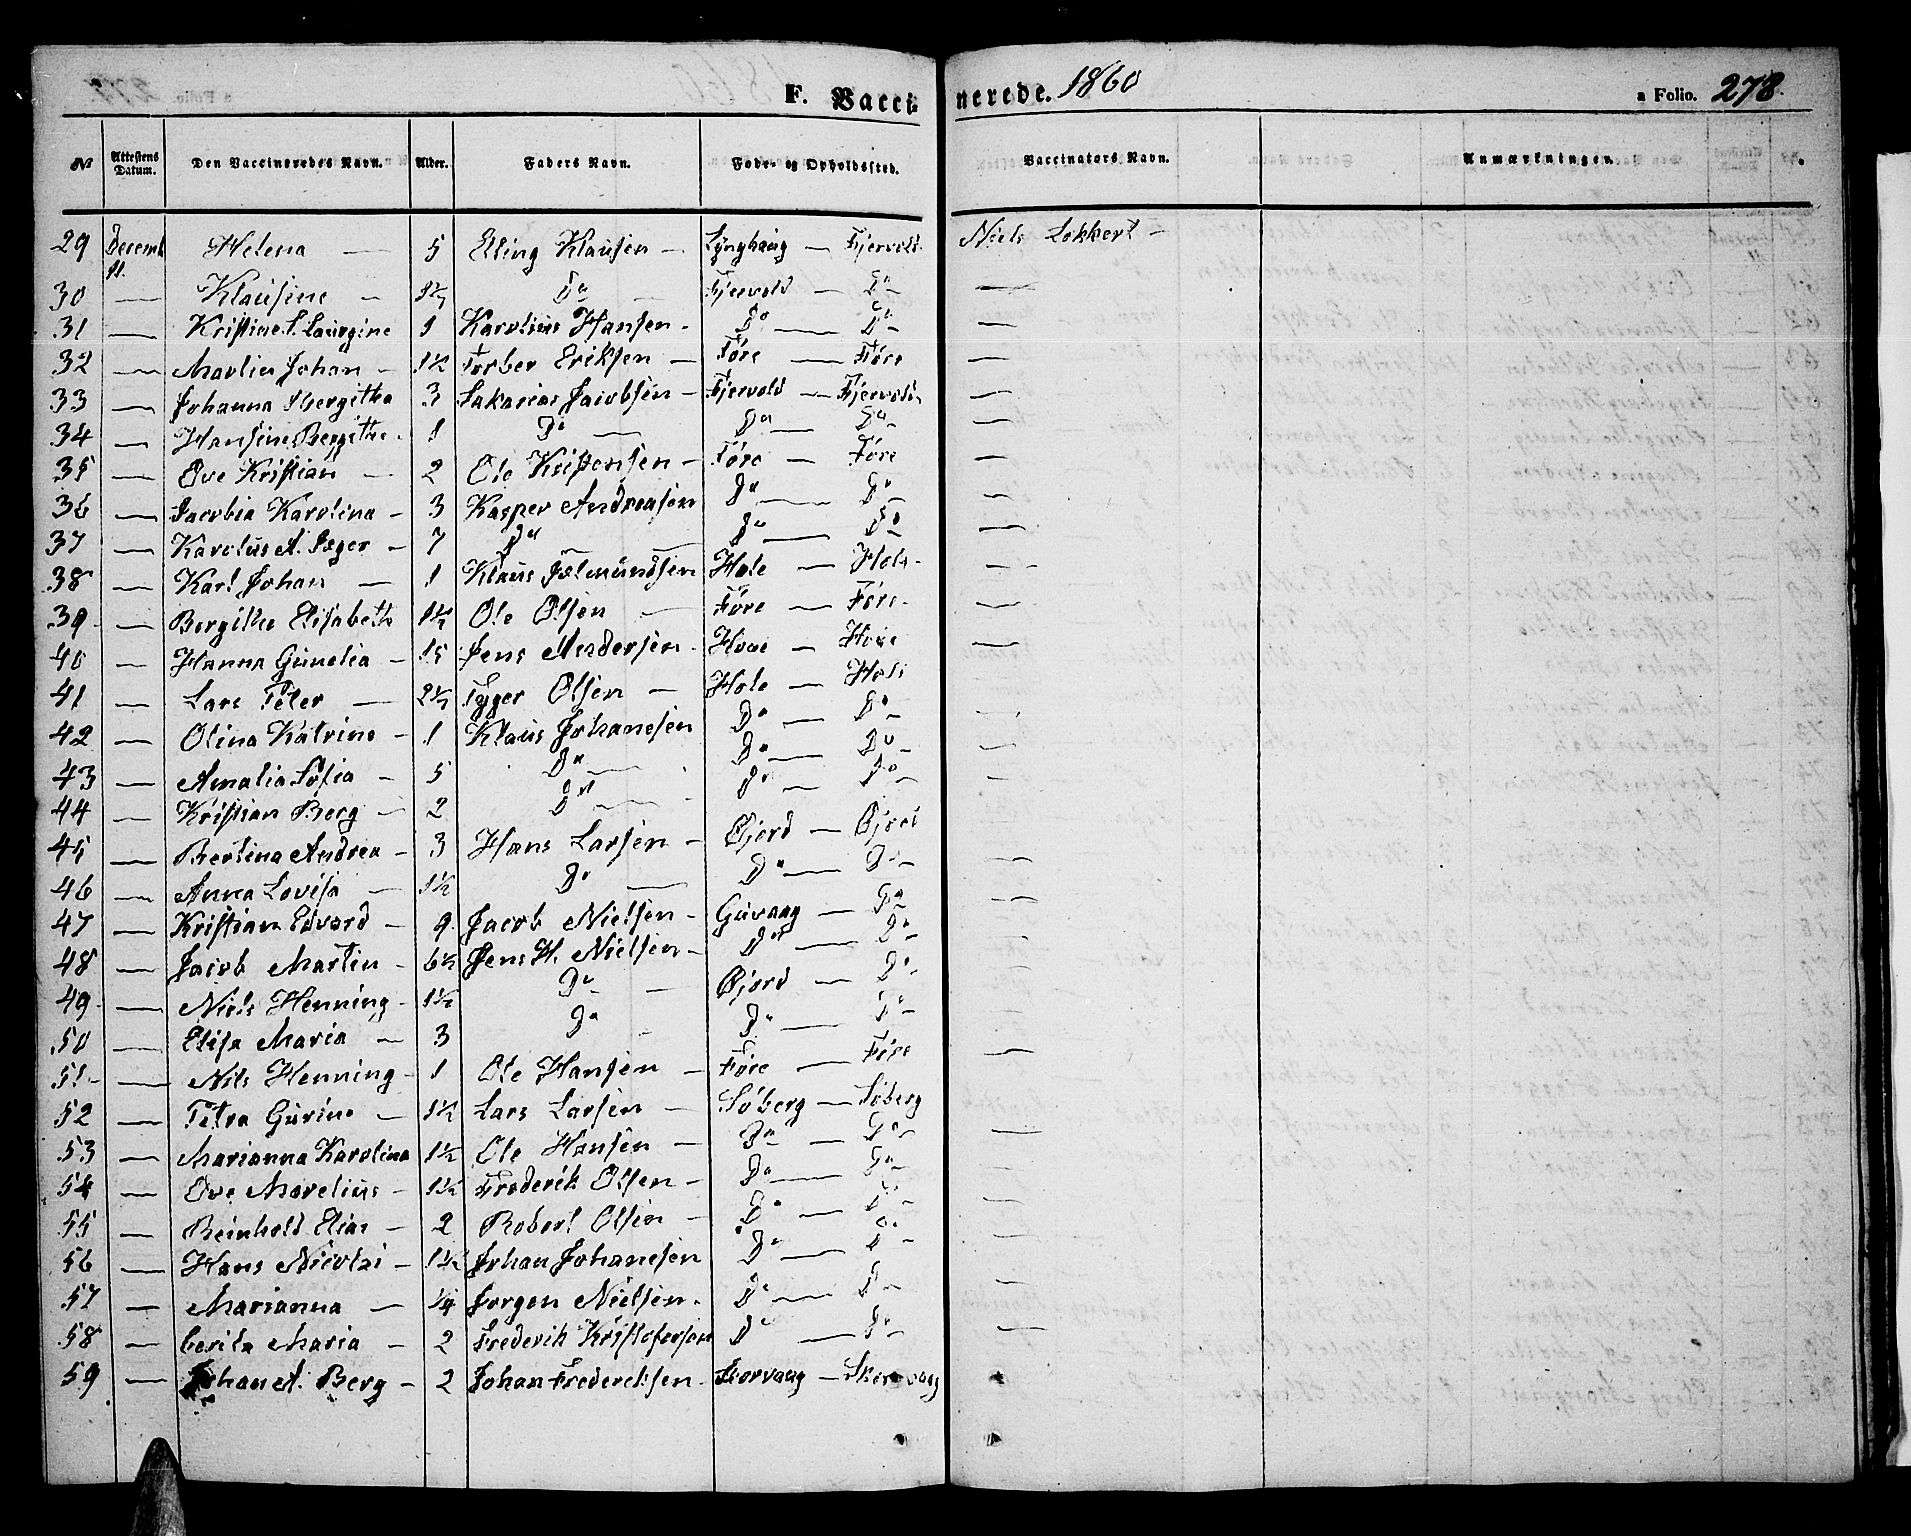 F. Vaccinerede. 1860 a Folio. 278.
№ Attestens Datum. Den Vaccineredes Navn. Alder. Faders Navn. Føde- og Opholdssted. Vaccinators Navn. Anmærkninger.
29 Decemb 11. Helena — 5 Elling Klausen — Lynghaug — Fjervold. Niels Lokkert —
30 — Klausine — 1½ Do — Fjervold — Do —
31 — Kristine L. Laurgine 1 Karolius Hansen — Do — Do —
32 — Marlin Johan — 1½ Torber Eriksen — Føre — Føre —
33 — Johanna Bergitha 3 Sakarias Jacobsen — Fjervold — Fjervold —
34 — Hansine Bergithe. 1 Do — Do — Do —
35 — Ove Kristian — 2 Ole Kristensen — Føre — Føre —
36 — Jacobia Karolina — 3 Kasper Andreasen Do — Do —
37 — Karolus A. — 7 Do — Do — Do —
38 — Karl Johan — 1 Klaus Hole — Hole —
39 — Bergithe Elisabeth 1½ Ole Olsen — Føre — Føre —
40 — Hanna Gunelia — 15 Jens Andersen — —
41 — Lars Peter — 2½ Olsen — Hole — Hole —
42 — Olina Katrine — 1 Klaus Johanesen Do — Do —
43 — Amalia Sofia — 5 Do — Do — Do —
44 — Kristian Berg — 2 Do — Do — Do —
45 — Bertina Andrea — 3 Hans Larsen — Øjord — Øjord
46 — Anna Lovisa — 1½ Do — Do — Do —
47 — Kristian Edvard — 9 Jacob Nielsen — Guvaag — Do —
48 — Jacob Martin — 6½ Jens H. Nielsen — Do — Do —
49 — Niels Henning — 1½ Do — Øjord — Do —
50 — Elisa Maria — 3 Do — Do — Do —
51 — Nils Henning — 1 Ole Hansen — Føre — Føre —
52 — Petra Gurine — 1½ Lars Larsen — Søberg — Søberg
53 — Marianna Karolina 1½ Ole Hansen — Do — Do —
54 — Ove Marelius — 1½ Frederik Olsen — Do — Do —
55 — Reinhold Elias — 2 Robert Olsen — Do — Do —
56 — Hans Nicolai — 1½ Johan Johanesen Do — Do —
57 — Marianna — ¼ Jørgen Nielsen — Do — Do —
58 — Maria — 2 Frederik Kristofersen Do — Do —
59 — Johan A. Berg — 2 Johan Frederiksen — Skorvaag — Skorvaag